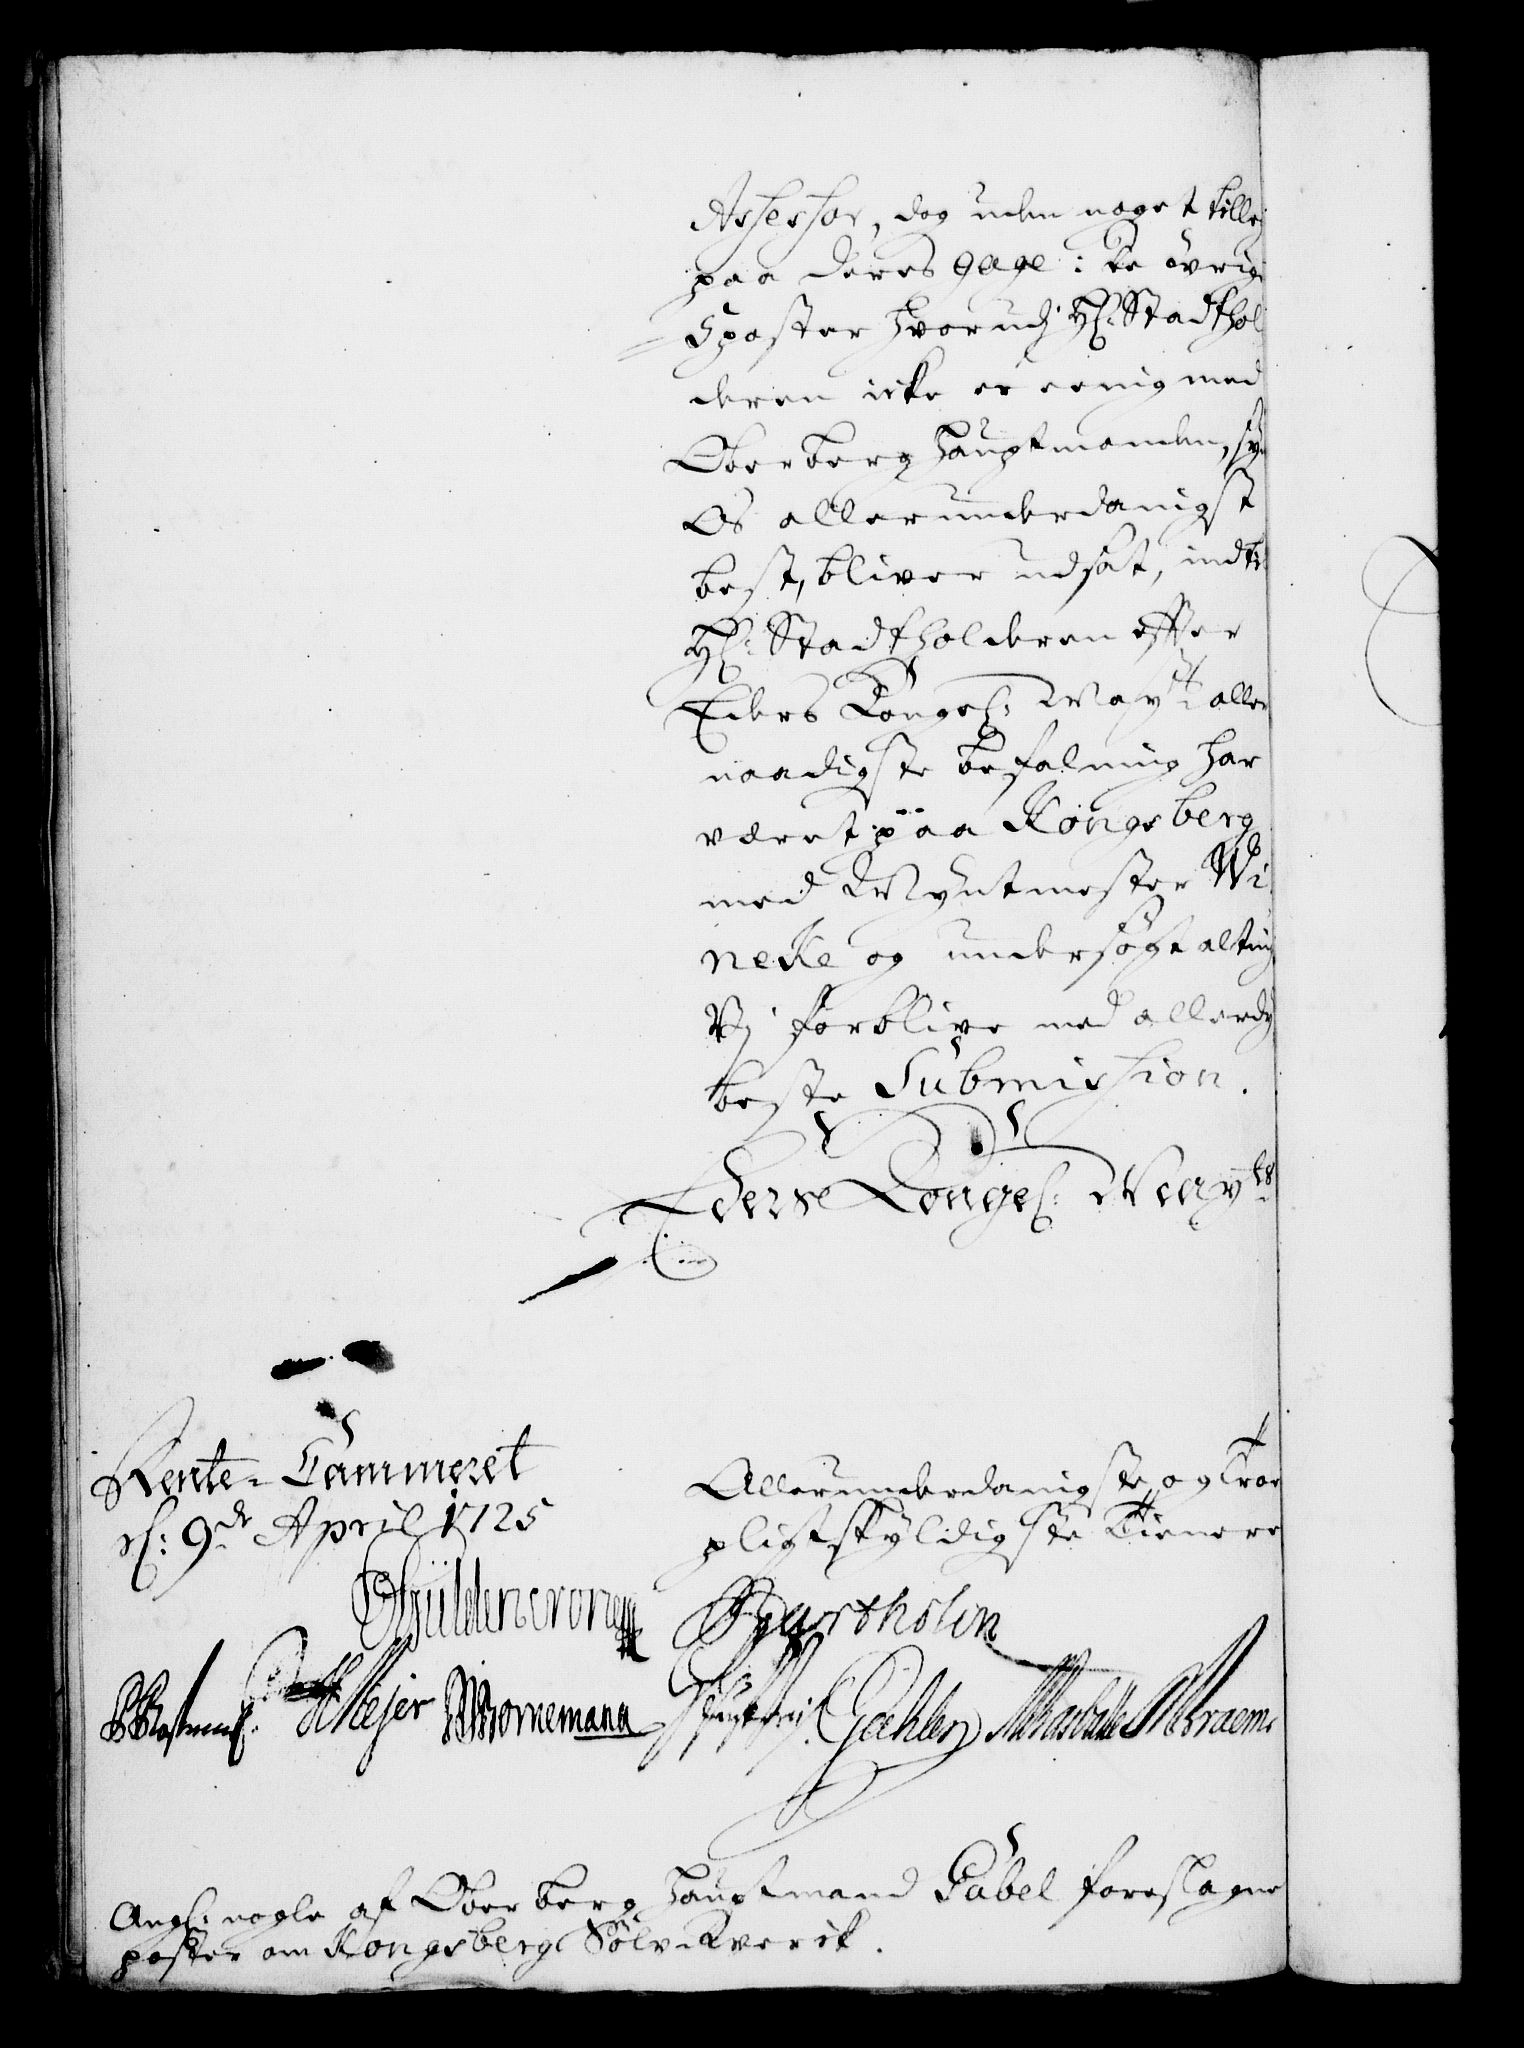 Assessor, dog uden noget tilleg
paa deres gage: De övrige
5 poster hvorudj H: Stadthol
deren icke er eenig med
Oberberghauptmanden, sÿn
Os allerunderdanigst
best, bliver udsat, indtil
H: Stadtholderen effter
Eders Kongel: Mayts aller
naadigste befalning har
været paa Kongsberg
med Myntmester Wi
neke og undersögt alting
Vj forblive med allerdy
beste Submission.
Eders Kongel: Mayts
Rente-Cammeret
d: 9de April 1725
Allerunderdanigste og Troe
pligtskÿldigste Tienere
Güldencrone
Bartholin
H Mejer Bornemann
Gæhler
Braem
Angl: nogle af Oberberghauptmand Gabel foreslagne
poster om Kongsberg Sölv-Werck.